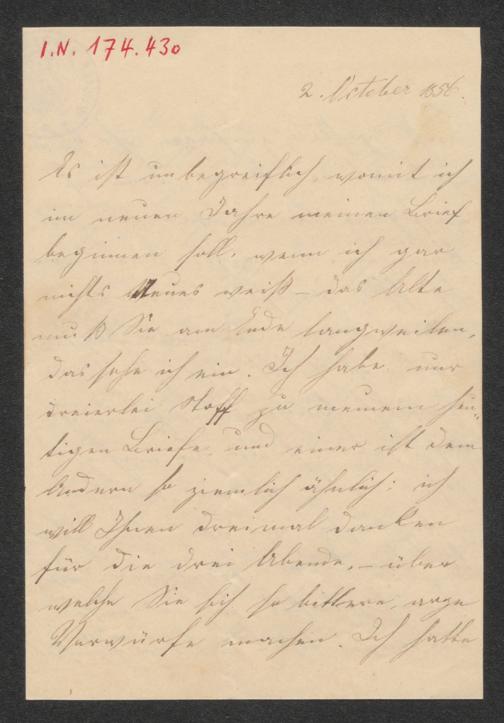 I.N. 174.430
2. October 1856.
Es ist unbegreiflich, womit ich
im neuen Jahre meinen Brief
beginnen soll, wenn ich gar
nichts Neues weiß – das Alte
muß Sie am Ende langweilen,
das sehe ich ein. Ich habe nur
dreierlei Stoff zu meinem heu-
tigen Briefe, und einer ist dem
Andern so ziemlich ähnlich: ich
will Ihnen dreimal danken
für die drei Abende, – über
welche Sie sich so bittere, arge
Vorwürfe machen. Ich hatte